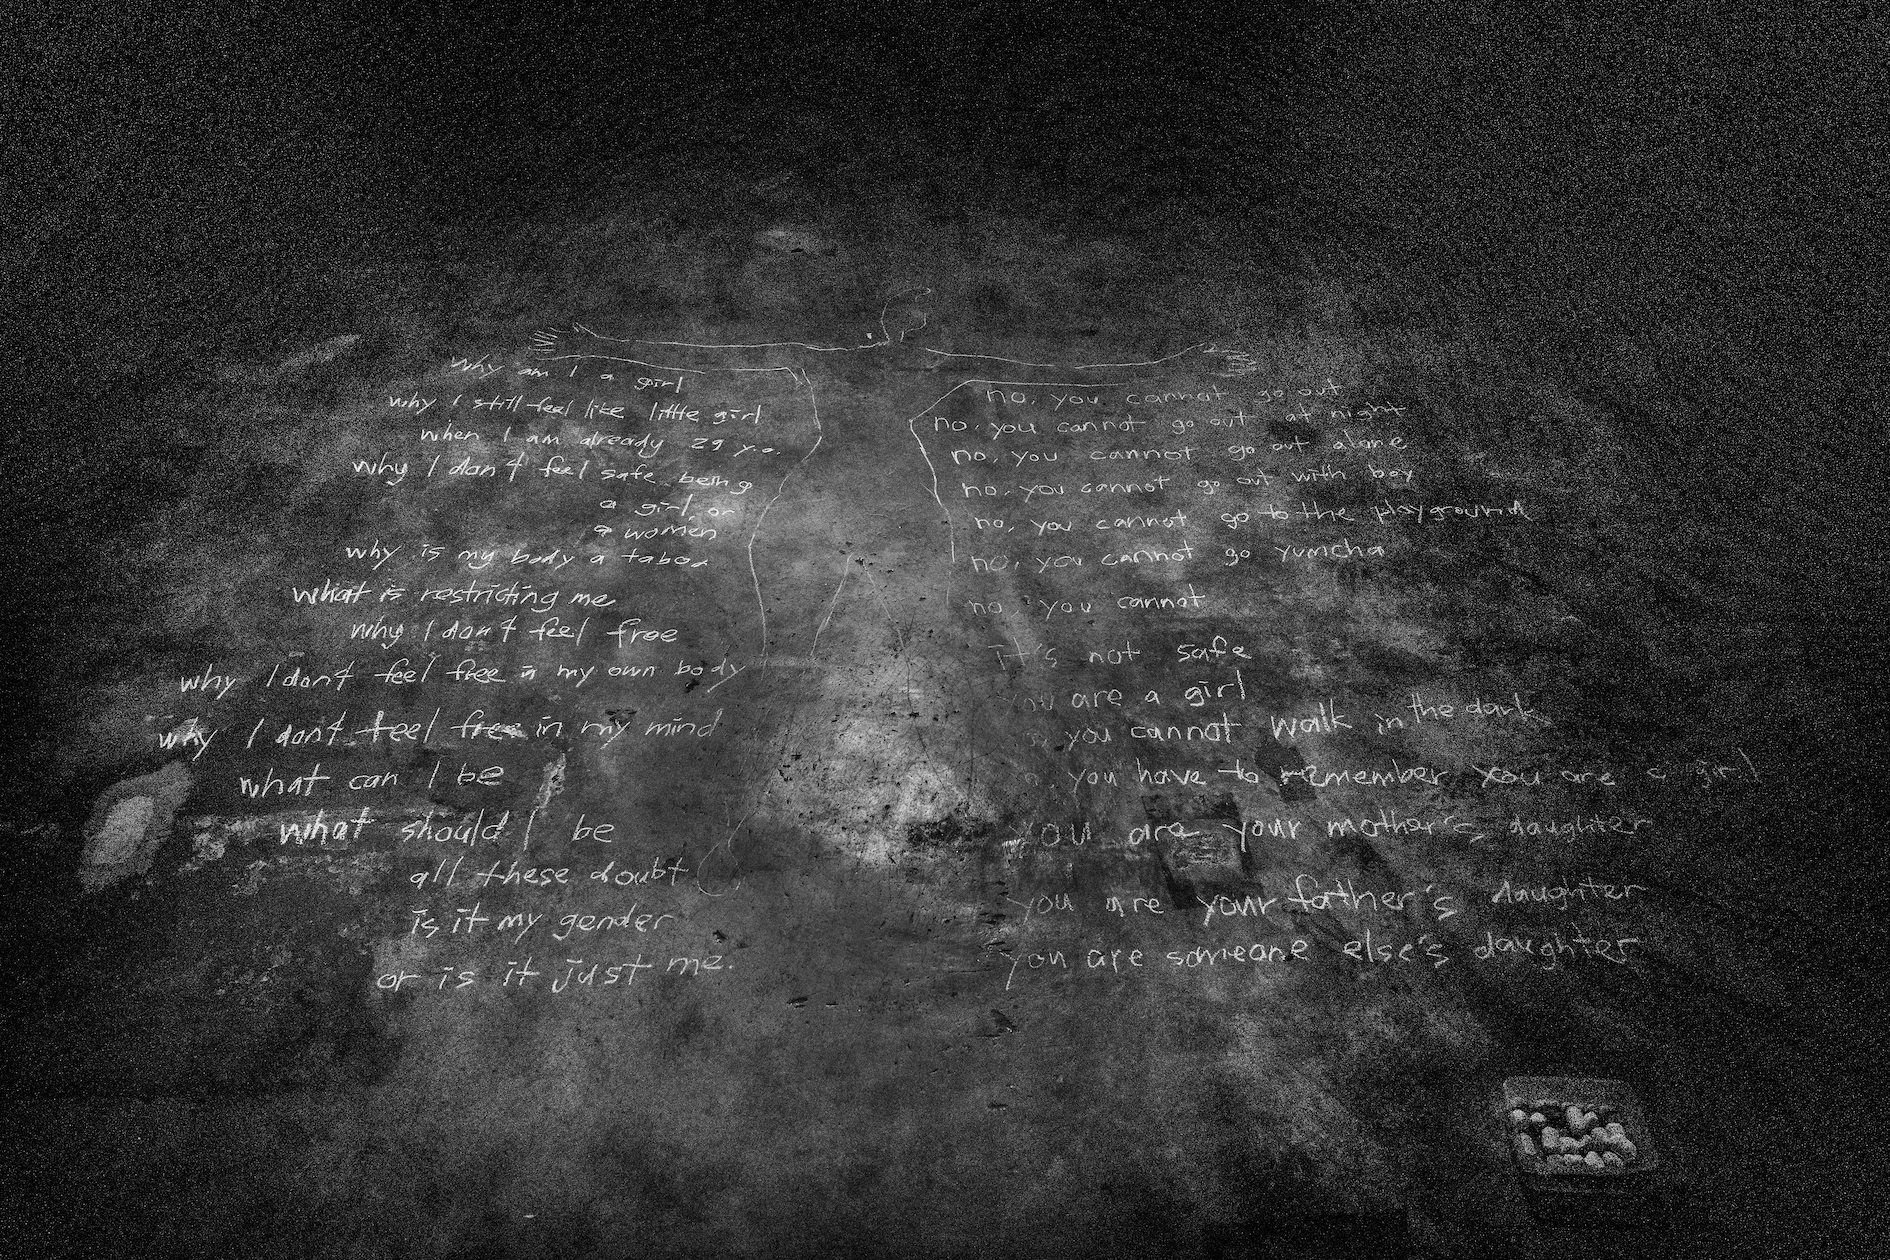 why am I a girl
why I still feel like little girl
when I am already 29 y.o.
why I don't feel safe being
a girl, or
a women
why is my body a taboo
what is restricting me
why I don't feel free
why I don't feel free in my own body
why I don't feel free in my mind
what can I be
what should I be
all these doubt
is it my gender
or is it just me.
no, you cannot go out
no, you cannot go out at night
no, you cannot go out alone
no, you cannot go out with boy
no, you cannot go to the playground
no, you cannot go yumcha
no, you cannot
it's not safe
you are a girl
you cannot walk in the dark
you have to remember you are a girl
you are your mother's daughter
you are your father's daughter
you are someone else's daughter